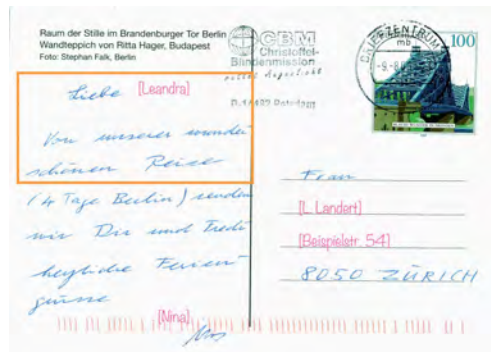 Raum der Stille im Brandenburger Tor Berlin
Wandteppich von Ritta Hager, Budapest
Foto: Stephan Falk, Berlin
CBM
Christoffel-
Blindenmission
BRIEFZENTRUM
mb
-9.-8
100
Liebe [Leandra]
Von unserer wunder
schönen Reise
(4 Tage Berlin) senden
wir Dir und Fredi
herzliche Ferien-
grüsse
[Nina]
Frau
[L. Landert]
[Beispielstr. 54]
8050 ZÜRICH